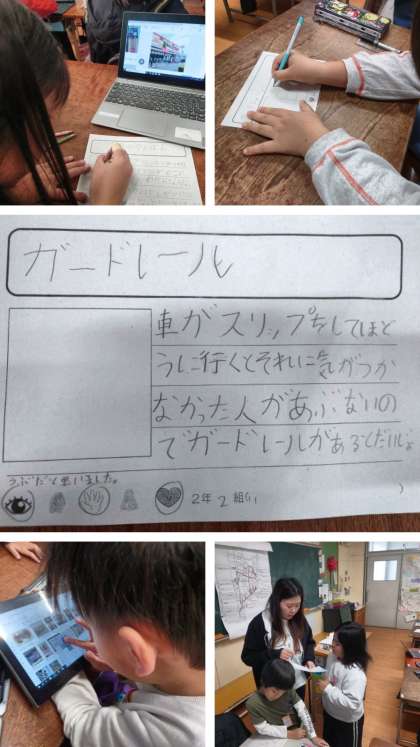 ガードレール
車がスリップをしてほど
うに行くとそれに気がつか
なかった人があぶないの
でガードレールがあるとだいじょ
うぶだと思いました。
2年 2 組(